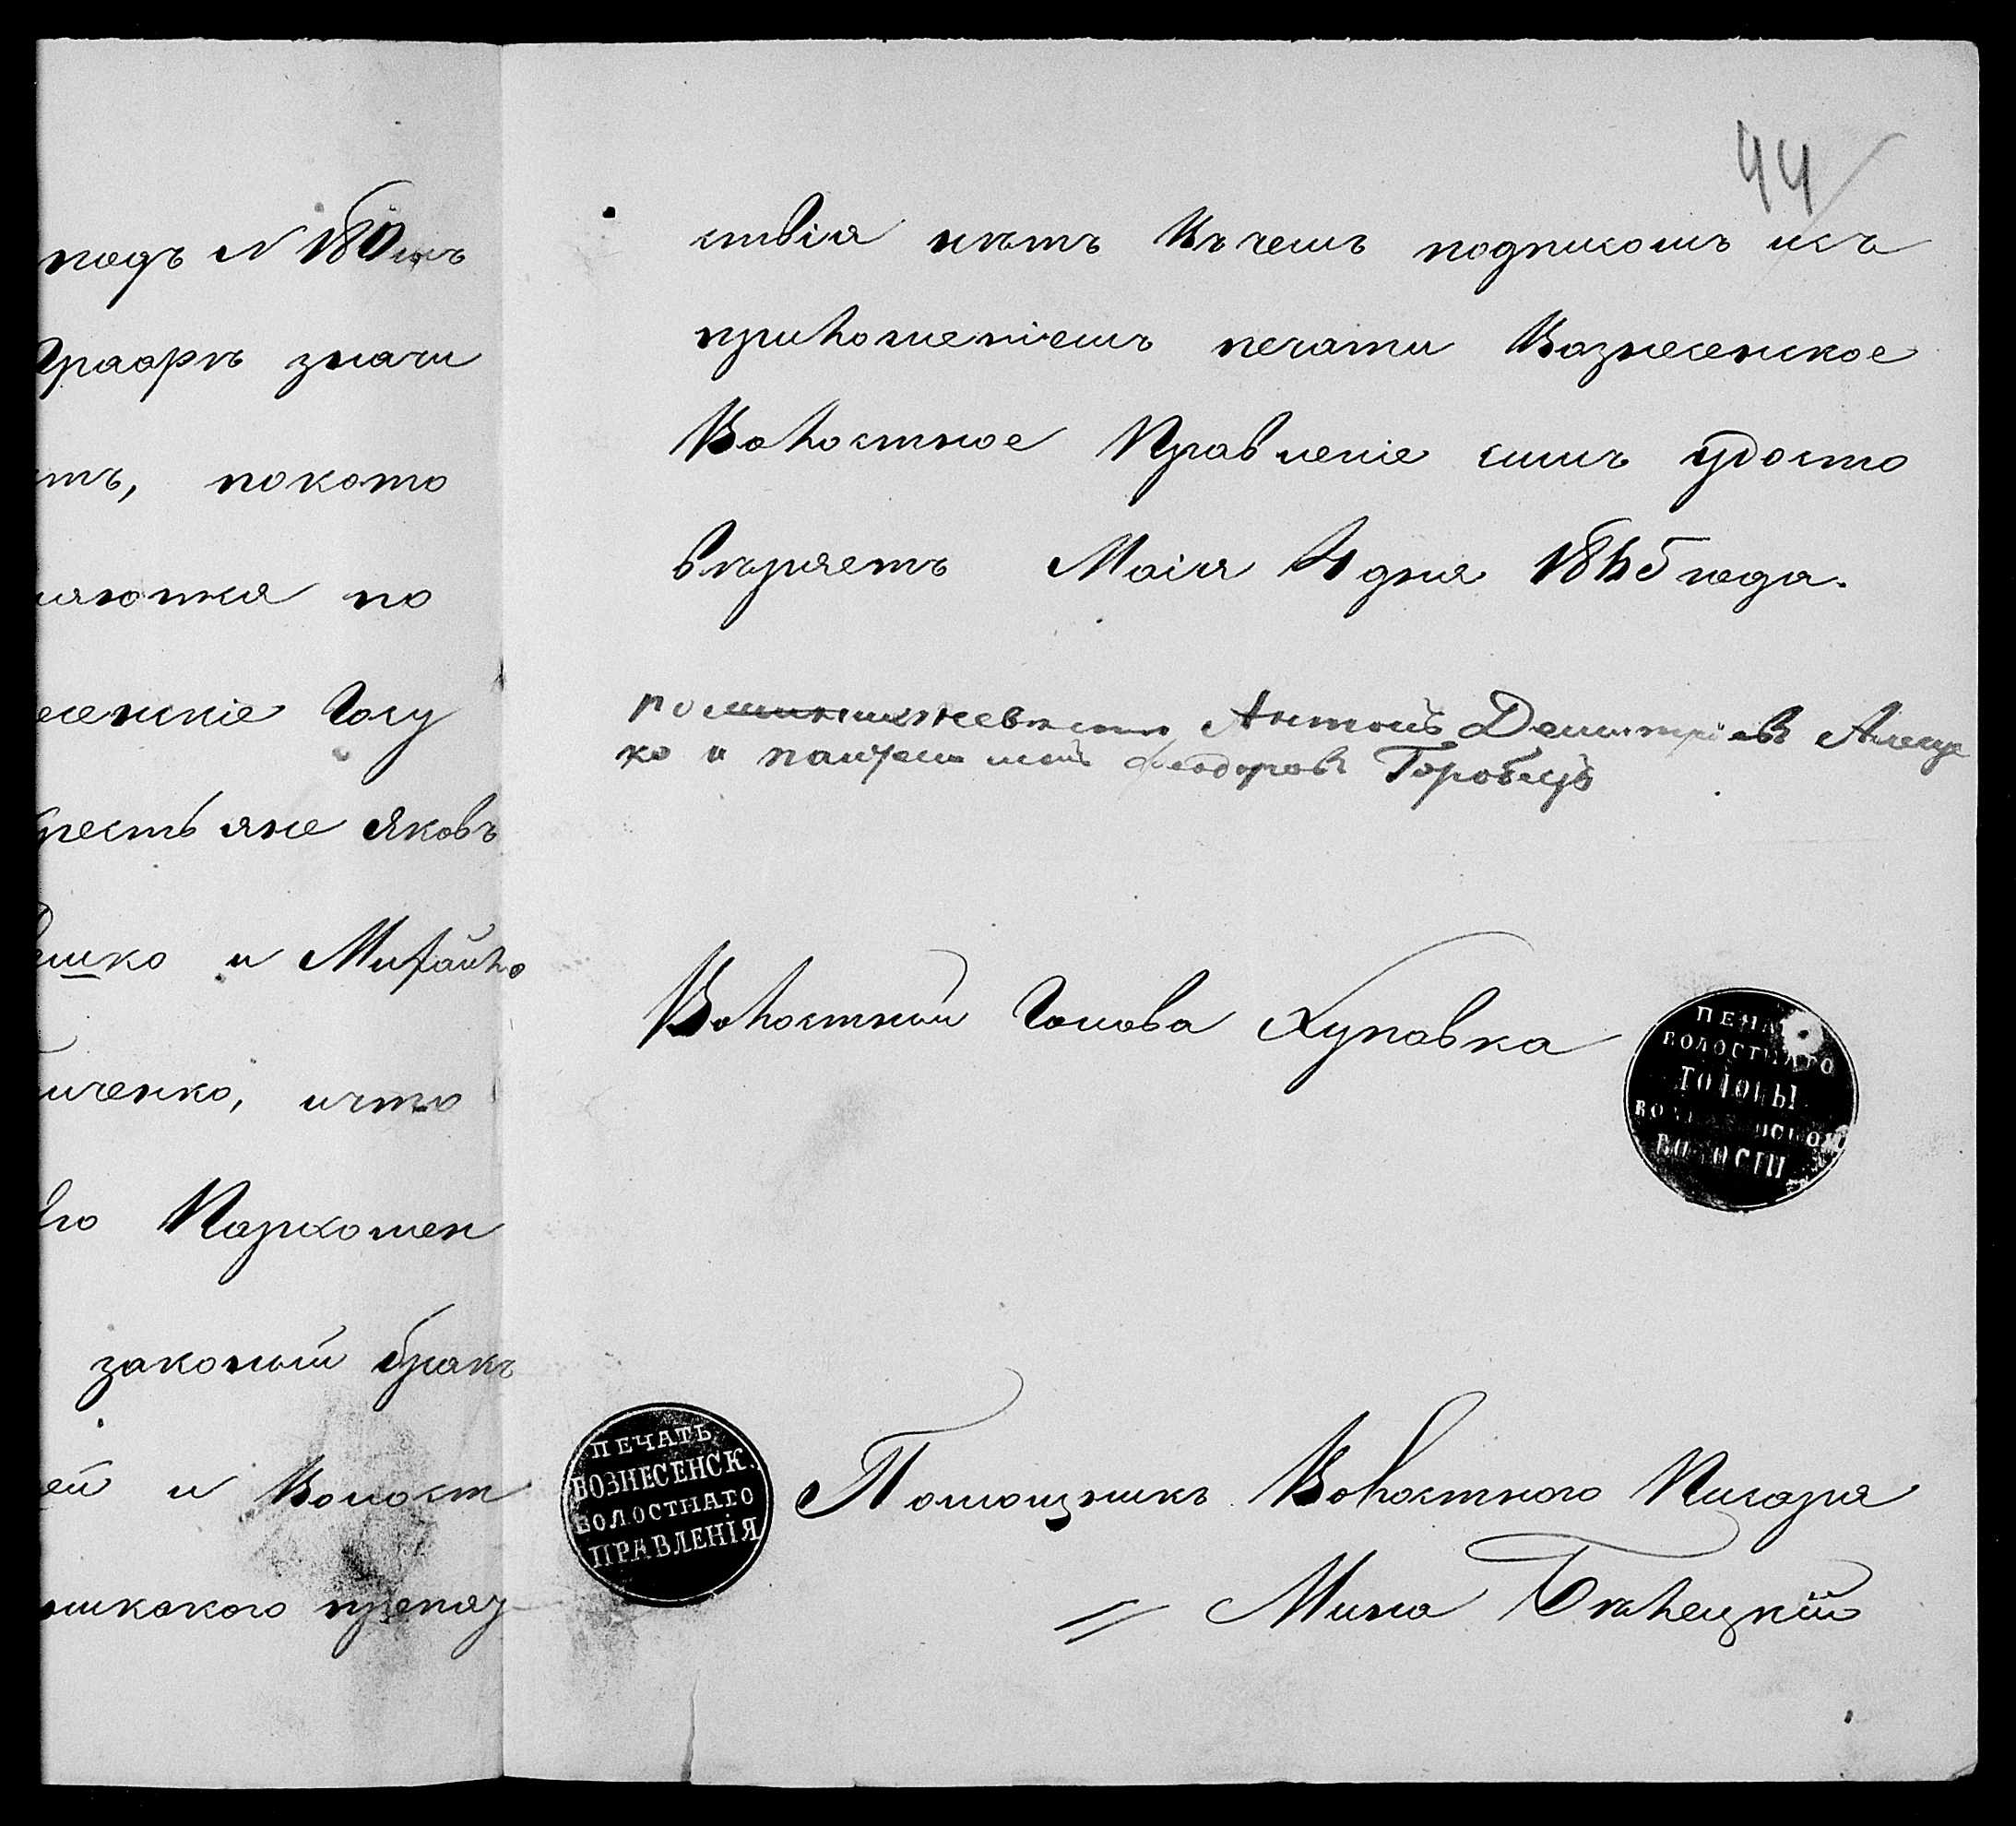 подъ N 180мъ
Граафѣ значи
тъ, покото
ляютъя по
есенскіе Госу
кресть яне Яковъ
шко и Михайло
иченко, ичто
го Пархомен
законый бракъ
ей и Волост
никакого препят
44
ствія нѣтъ Въчемъ подписомъ исъ
приложеніемъ печати Вознесенское
Волостное Правленіе симъ удосто
вѣряетъ Маія 4 дня 1845 года.
Антонъ Демитріевъ
ко и Феодоровъ Горобецъ
Волостный Голова Хупавка
ПЕЧА
ВОЛОСТНАГО
ГОЛОВЫ
ВОЗНЕСЕНСКОЙ
ВОЛОСТИ
ПЕЧАТЬ
ВОЗНЕСЕНСК.
ВОЛОСТНАГО
ПРАВЛЕНІЯ
Помощникъ Волостного Писаря
Мина Бѣлецкій